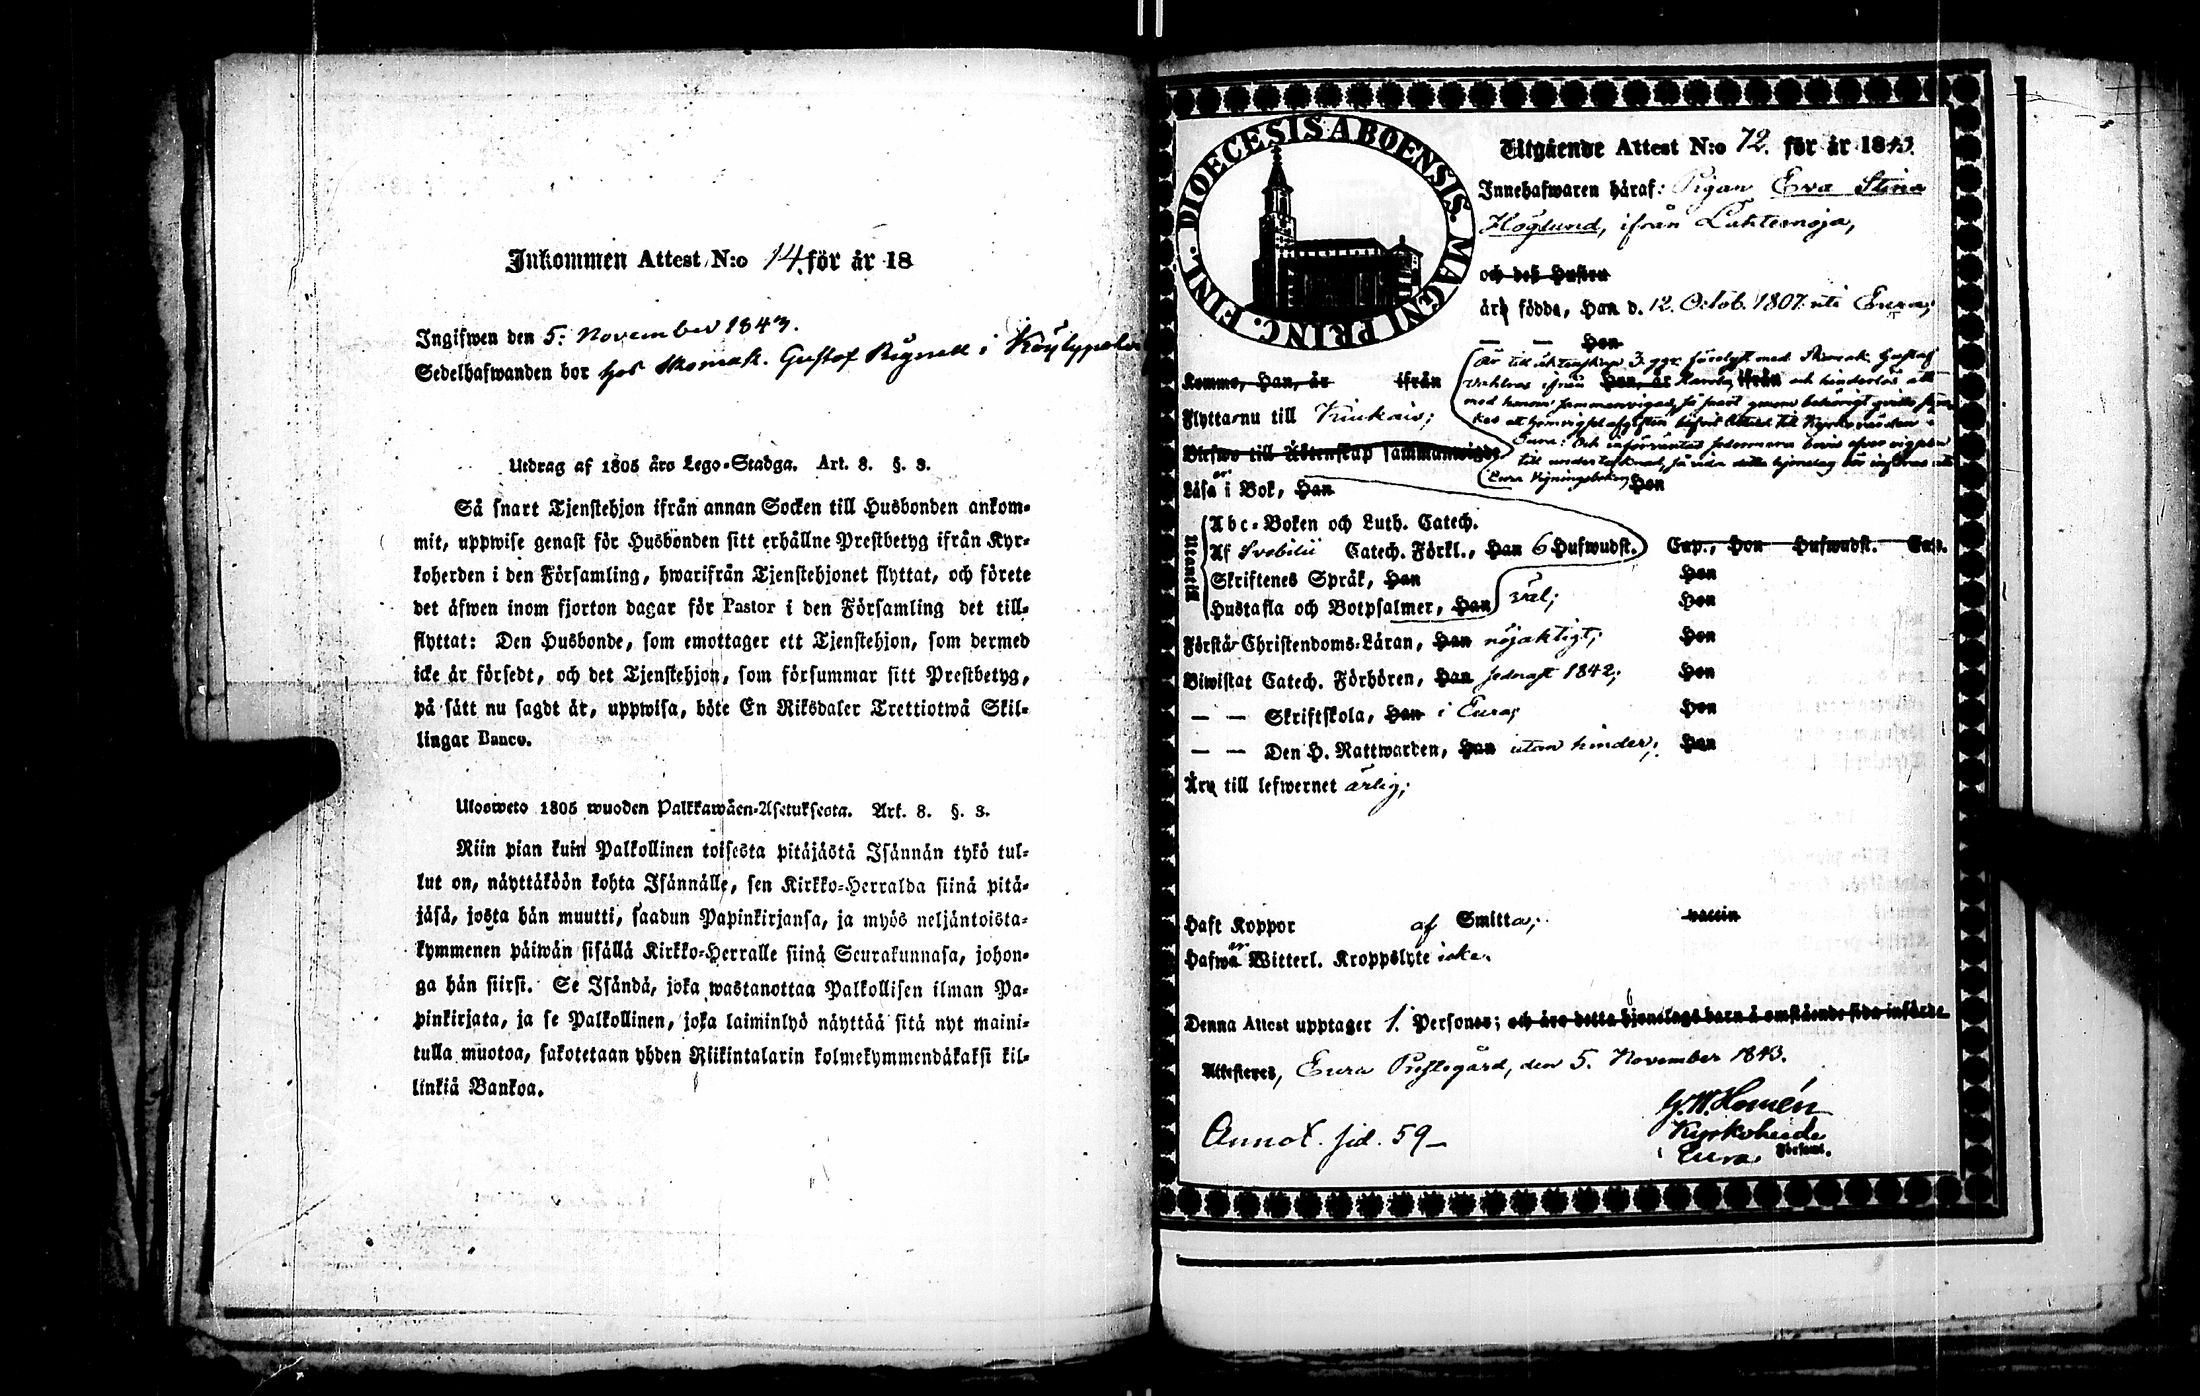 Inkommen Attest N:o 14. för år 18
Ingifwen den 5: November 1843.
Sedelhafwanden bor hos Skomak. Gustaf Rignell i Köylypolvi
Utdrag af 1805 års Lego-Stadga. Art. 8. §. 3.
Så snart Tjenstehjon ifrån annan Socken till Husbonden ankom-
mit, uppwise genast för Husbonden sitt erhållne Prestbetyg ifrån Kyr-
koherden i den Församling, hwarifrån Tjenstehjonet flyttat, och förete
det äfwen inom fjorton dagar för Pastor i den Församling det till-
flyttat: Den Husbonde, som emottager ett Tjenstehjon, som dermed
icke är försedt, och det Tjenstehjon, som försummar sitt Prestbetyg,
på sätt nu sagdt är, uppwisa, böte En Riksdaler Trettiotwå Skil-
lingar Banco.
Ulosweto 1805 wuoden Palkkawäen-Asetuksesta. Art. 8. §. 3.
Niin pian kuin Palkollinen toisesta pitäjästä Isännän tykö tul-
lut on, näyttäköön kohta Isännälle, sen Kirkko-Herralda siinä pitä-
jäsä, josta hän muutti, saadun Papinkirjansa, ja myös neljäntoista-
kymmenen päiwän sisällä Kirkko-Herralle siinä Seurakunnasa, johon-
ga hän siirsi. Se Isändä, joka wastanottaa Palkollisen ilman Pa-
pinkirjata, ja se Palkollinen, joka laiminlyö näyttää sitä nyt maini-
tulla muotoa, sakotetaan yhden Riikintalarin kolmekymmendäkaksi kil-
linkiä Bankoa.
DIOECESIS ABOENSIS. MAGNI PRINC. FINL.
Utgående Attest N:o 72. för år 1843.
Innehafwaren häraf: Pigan Eva Stina
Höglund, ifrån Lahtemoja,
och deß Hustru
äro födde, Han d. 12. Octob. 1807. uti Eura;
— — Hon
Är till äktenskap 3. ggr. förelyst med Skomak. Gustaf
Komne, Han, är ifrån Hon, är ifrån och hinderlös att
Flytta nu till Kiukais;
Blefwo till Äktenskap sammanwigde
Eura Vigningsboken
Läsa i Bok, Han Hon
Utantill
Abc-Boken och Luth. Catech.
Af Svebilii Catech. Förkl., Han 6 Hufwudst. Cap., Hon Hufwudst. Cap.
Skriftenes Språk, Han Hon
Hustafla och Botpsalmer, Han väl; Hon
Förstå Christendoms-Läran, Han nöjaktigt; Hon
Biwistat Catech. Förhören, Han sednast 1842; Hon
— — Skriftskola, Han i Eura; Hon
— — Den H. Nattwarden, Han utan hinder; Hon
Äro till lefwernet ärlig;
Haft Koppor af Smitta; vaccin
Hafwa Witterl. Kroppslyte icke.
Denna Attest upptager 1. Personer; och äro detta hjonelags barn å omstående sida införde
Attesteres, Eura Prestegård, den 5. November 1843.
G. W. Homén
Kyrkoherde
i Eura Församl.
Annot. sid. 59—